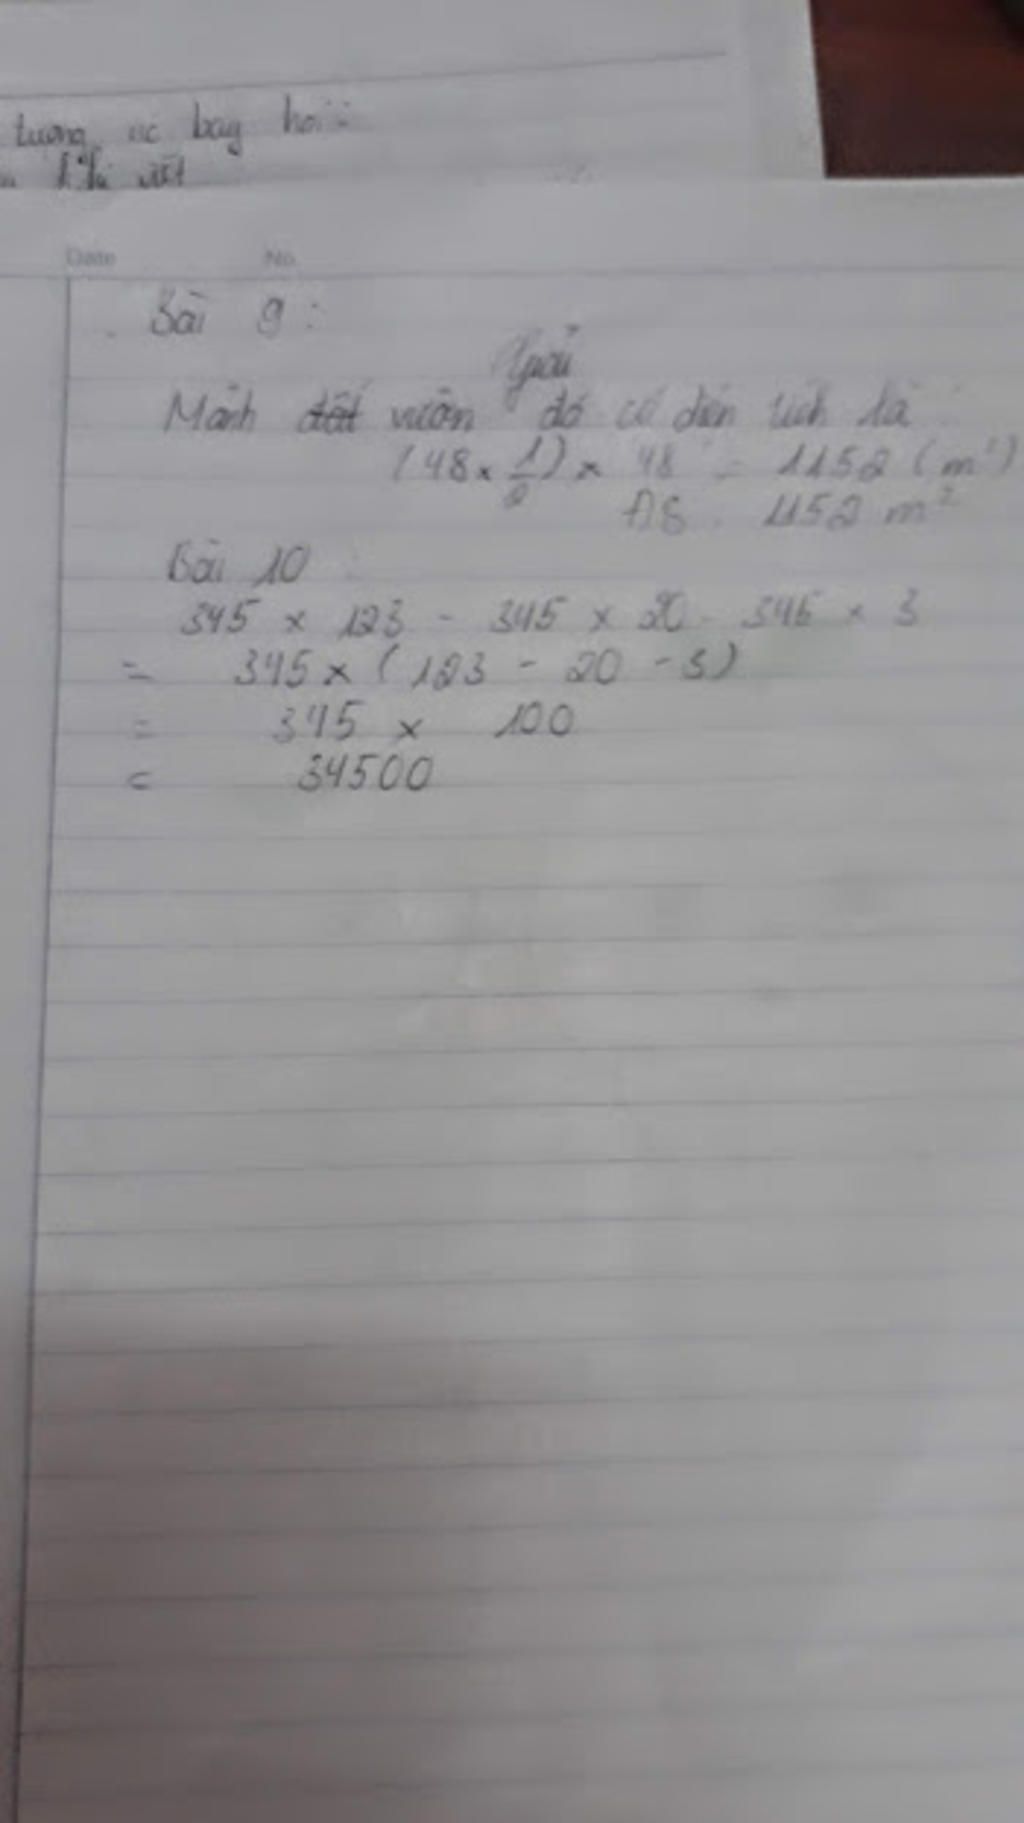 tượng úc bay hơi :
viết
Date No.
Bài 9 :
Giải
Mảnh đất vườn đó có diện tích là :
(48 x 1/2) x 48 = 1152 (m²)
ĐS : 1152 m²
Bài 10 :
345 x 123 - 345 x 20 - 345 x 3
= 345 x (123 - 20 - 3)
= 345 x 100
= 34500